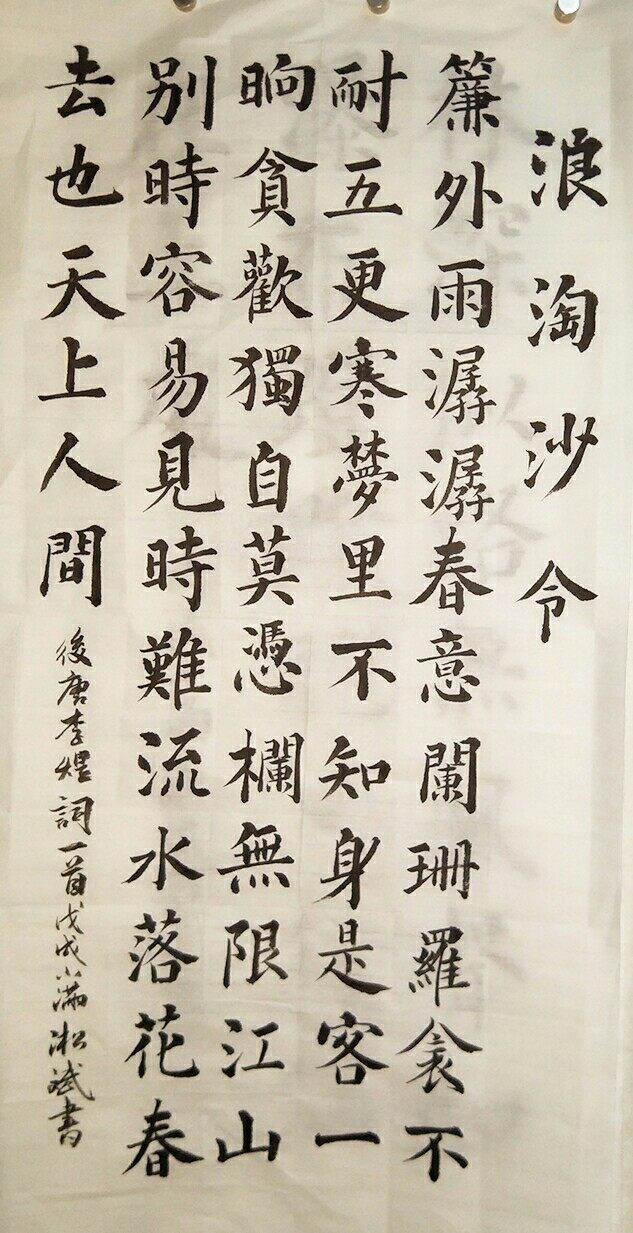 浪淘沙令
簾外雨潺潺春意闌珊羅衾不
耐五更寒夢里不知身是客一
晌貪歡獨自莫憑欄無限江山
别時容易見時難流水落花春
去也天上人間
後唐李煜詞一首戊戌小滿淞斌書